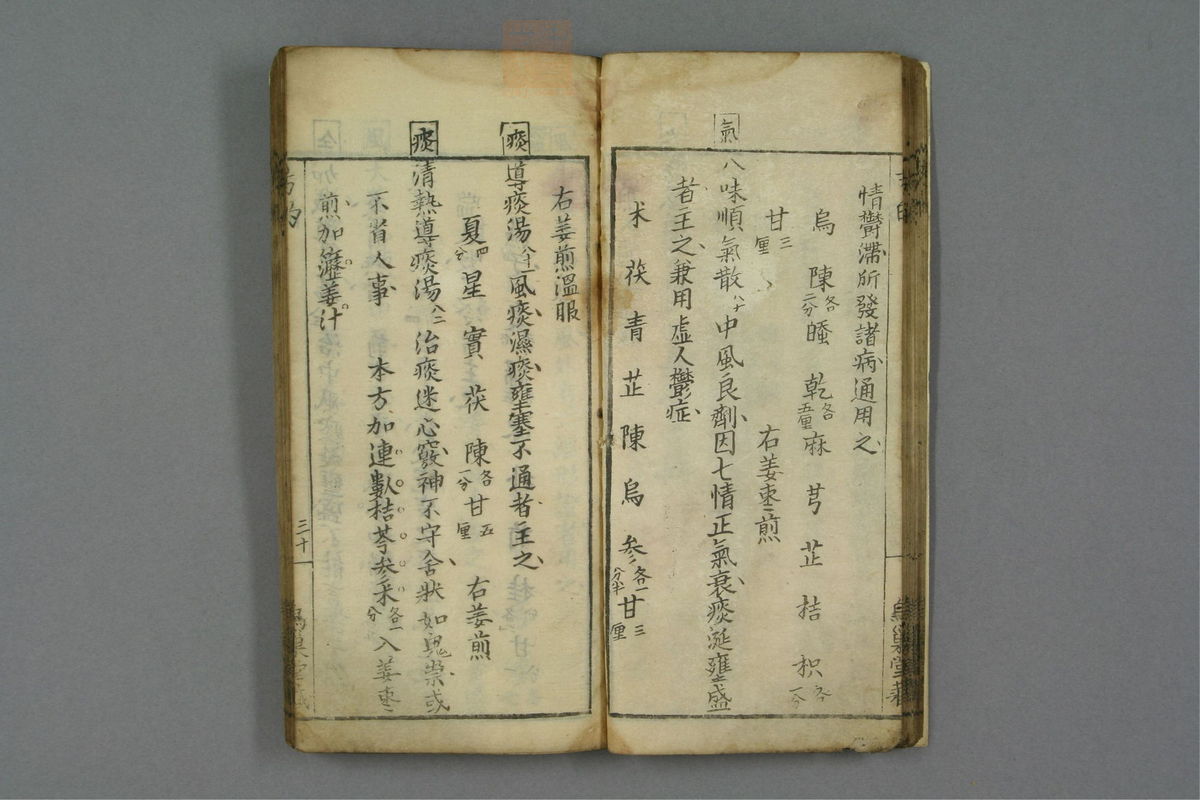 情鬱滯所發諸病通用之
烏 陳各二分 蠶 乾各五厘 麻 芎 芷 桔 枳各一分
甘三厘 右姜棗煎
氣 八味順氣散八十 中風良劑因七情正氣衰痰涎壅盛
者主之兼用虛人鬱症
术 茯 青 芷 陳 烏 参各一分半 甘三厘
右姜煎溫服
痰 導痰湯八十一 風痰濕痰壅塞不通者主之
夏四分 星 實 茯 陳各一分 甘五厘 右姜煎
痰 清熱導痰湯八二 治痰迷心竅神不守舍狀如鬼祟或
不省人事 本方加連 桔芩参术各一分 入姜棗
煎加瀝姜汁
三十